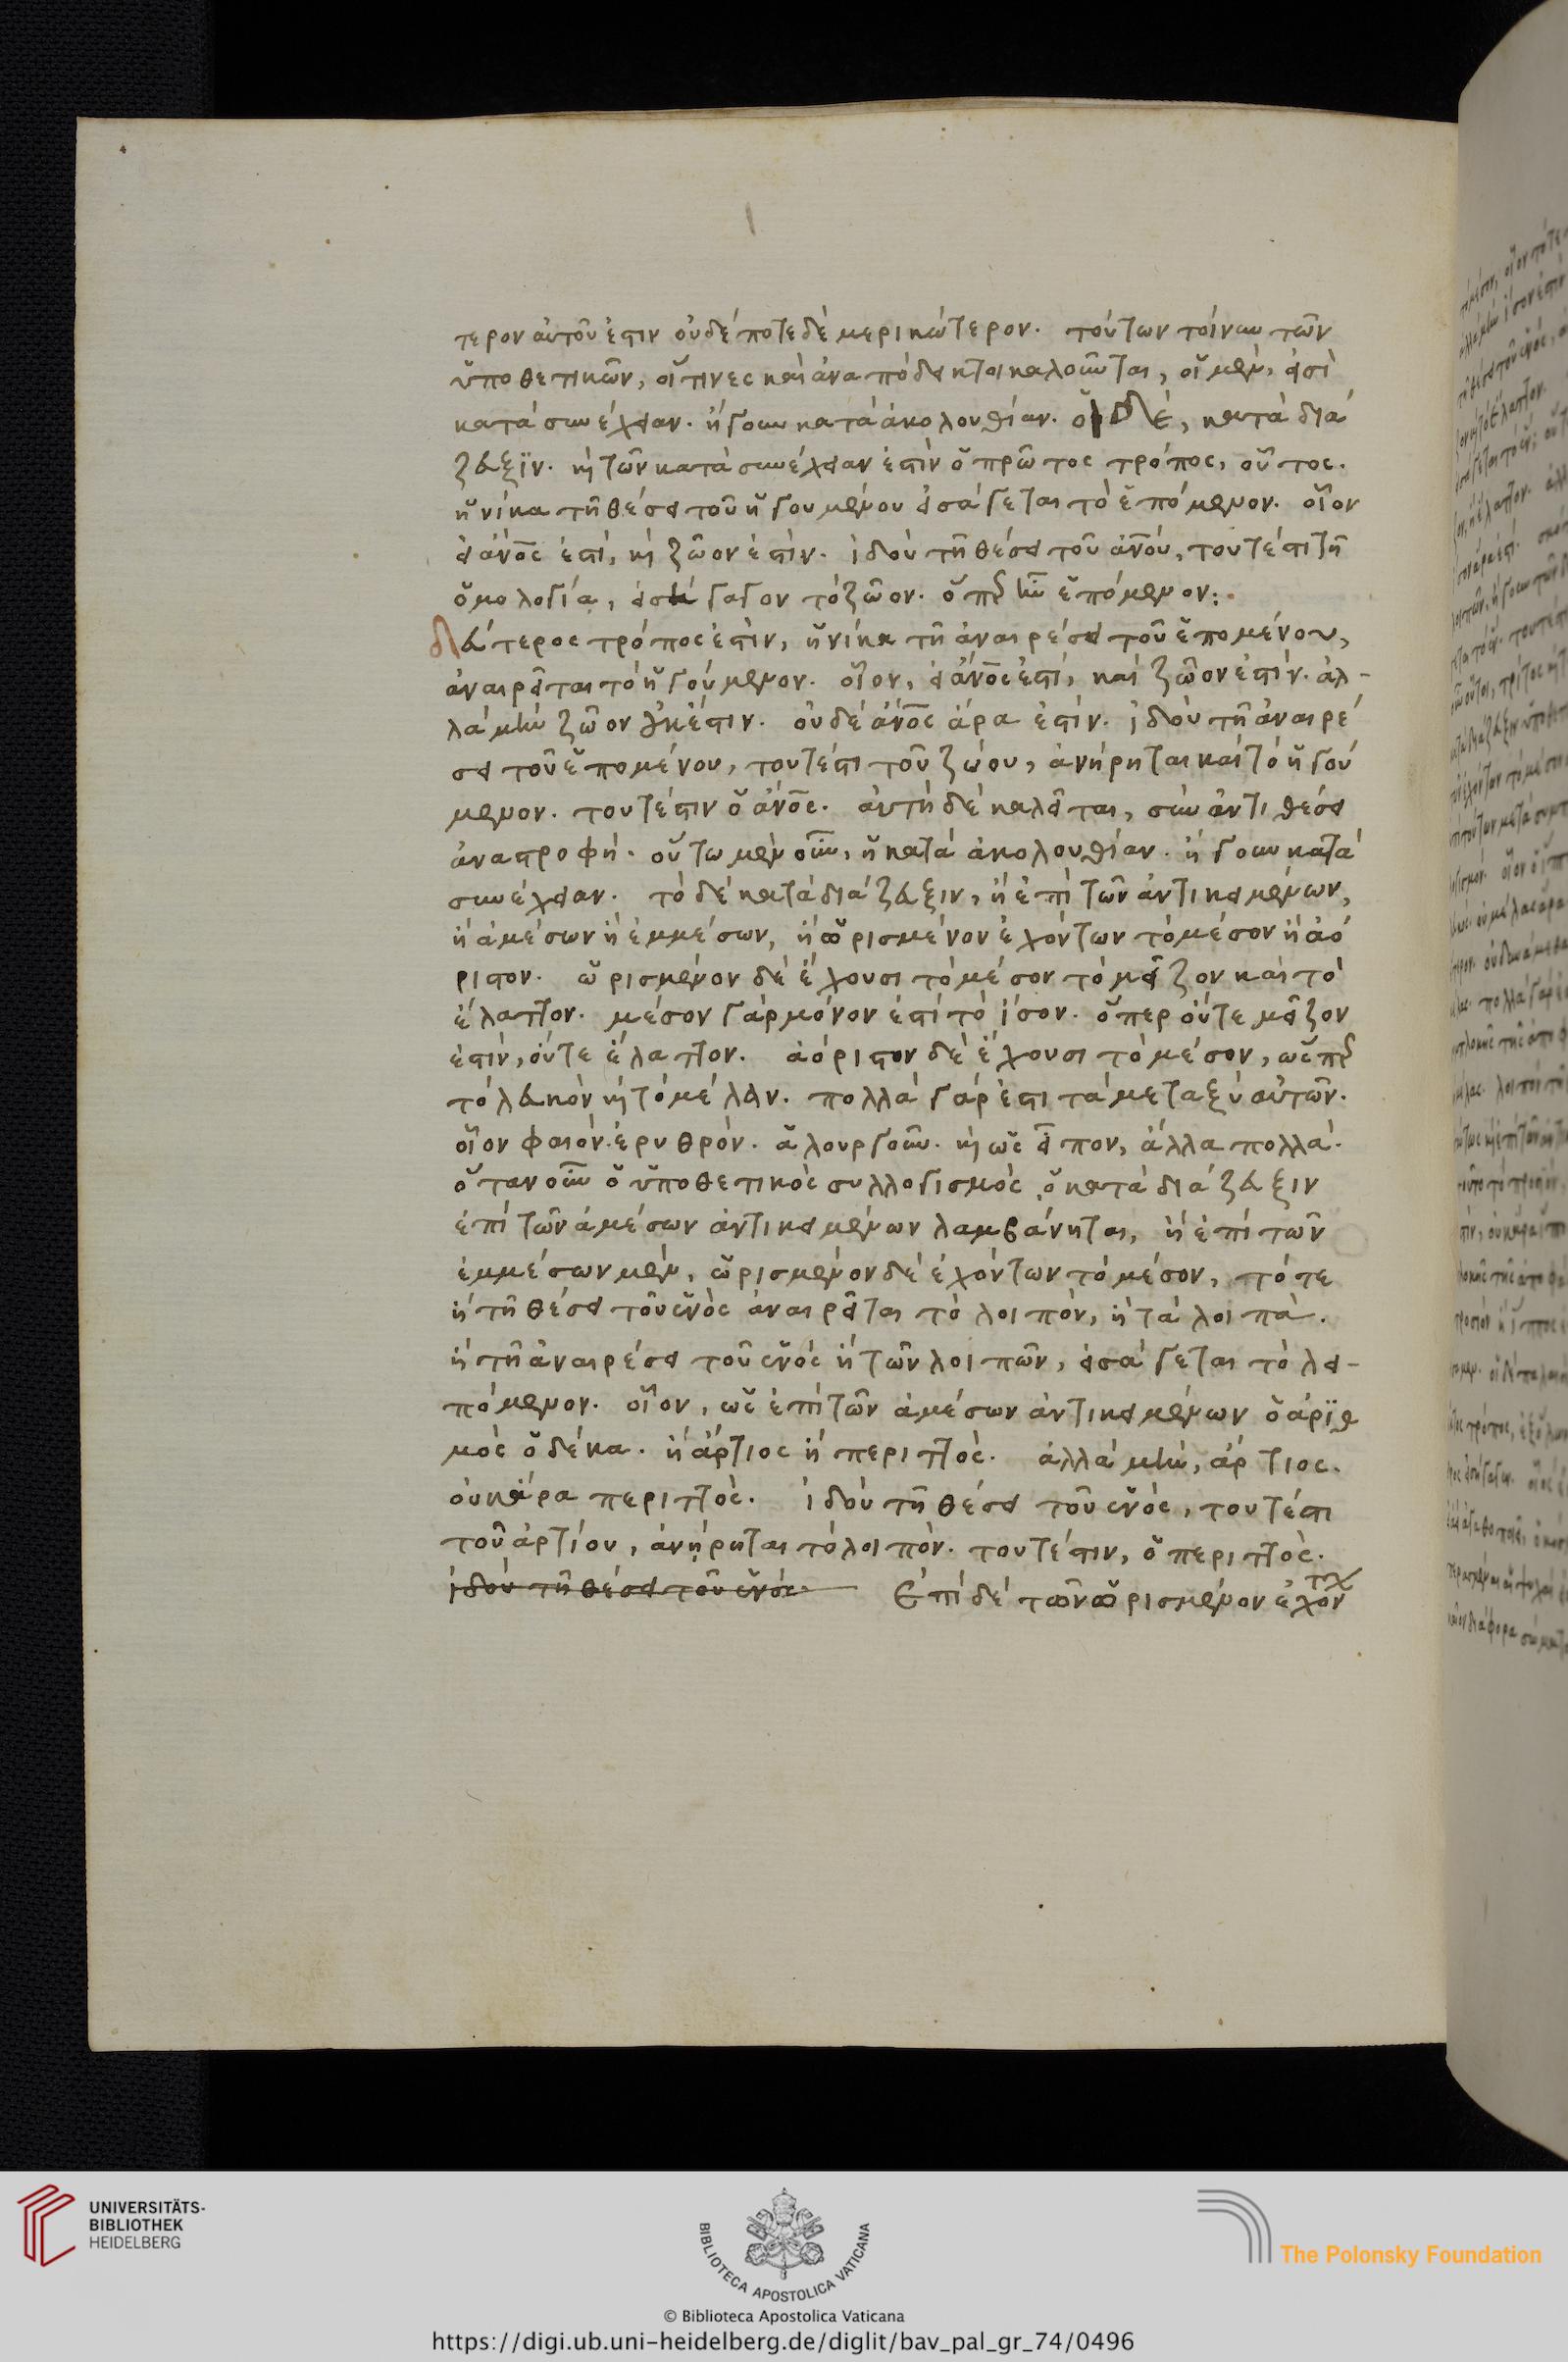 τερον αὐτοῦ ἐστιν οὐδέποτε δὲ μερικώτερον. τούτων τοίνυν τῶν
ὑποθετικῶν, οἵτινες καὶ ἀναπόδεικτοι καλοῦνται, οἱ μέν, εἰσὶ
κατὰ συνέχειαν. ἤγουν κατὰ ἀκολουθίαν. οἱ δὲ, κατὰ διά
ζευξϊν. κὴ τῶν κατὰ συνέχειαν ἐστὶν ὁ πρῶτος τρόπος, οὗτος.
ἡνίκα τῆ θέσει τοῦ ἡγουμένου εἰσάγεται τὸ ἑπόμενον. οἷον
εἰ ἄν͞ος ἐστί, κὴ ζῶον ἐστίν. ἰδοὺ τῆ θέσει τοῦ ἀν͞ου, τουτέστι τῆ
ὁμολογία, εἰσήγαγον τὸ ζῶον. ὅπερ ἦν ἑπόμενον:·
δεύτερος τρόπος ἐστὶν, ἡνίκα τῆ ἀναιρέσει τοῦ ἑπομένου,
ἀναιρεῖται τὸ ἡγούμενον. οἷον, εἰ ἄν͞ος ἐστί, καὶ ζῶον ἐστίν. ἀλ-
λὰ μὴν ζῶον οὐκ ἔστιν. οὐδὲ ἄν͞ος ἄρα ἐστίν. ἰδοὺ τῆ ἀναιρέ
σει τοῦ ἑπομένου, τουτέστι τοῦ ζώου, ἀνήρηται καὶ τὸ ἡγού
μενον. τουτέστιν ὁ ἄν͞ος. αὐτὴ δὲ καλεῖται, σὺν ἀντιθέσει
ἀναστροφή. οὕτω μὲν οὖν, ἡ κατὰ ἀκολουθίαν. ἤγουν κατὰ
συνέχειαν. τὸ δὲ κατὰ διάζευξιν, ἢ ἐπὶ τῶν ἀντικειμένων,
ἢ ἀμέσων ἢ ἐμμέσων, ἢ ὡρισμένον ἐχόντων τὸ μέσον ἢ ἀό
ριστον. ὡρισμένον δὲ ἔχουσι τὸ μέσον τὸ μεῖζον καὶ τὸ
ἔλαττον. μέσον γὰρ μόνον ἐστὶ τὸ ἴσον. ὅπερ οὔτε μεῖζον
ἐστίν, οὔτε ἔλαττον. ἀόριστον δὲ ἔχουσι τὸ μέσον, ὥσπερ
τὸ λευκὸν κὴ τὸ μέλαν. πολλὰ γάρ ἐστι τὰ μεταξὺ αὐτῶν.
οἷον φαιόν. ἐρυθρόν. ἁλουργοῦν. κὴ ὡς εἶπον, ἄλλα πολλά.
ὅταν οὖν ὁ ὑποθετικὸς συλλογισμὸς ὁ κατὰ διάζευξιν
ἐπὶ τῶν ἀμέσων ἀντικειμένων λαμβάνηται, ἢ ἐπὶ τῶν
ἐμμέσων μέν, ὡρισμένον δὲ ἐχόντων τὸ μέσον, τότε
ἢ τῆ θέσει τοῦ ἑνὸς ἀναιρεῖται τὸ λοιπόν, ἢ τὰ λοιπὰ.
ἢ τῆ ἀναιρέσει τοῦ ἑνὸς ἢ τῶν λοιπῶν, εἰσάγεται τὸ λει-
πόμενον. οἷον, ὡς ἐπὶ τῶν ἀμέσων ἀντικειμένων ὁ ἀρϊθ
μὸς ὁ δέκα. ἢ ἄρτιος ἢ περιττὸς. ἀλλὰ μὴν, ἄρτιος.
οὐκ ἄρα περιττὸς. ἰδοὺ τῆ θέσει τοῦ ἑνὸς, τουτέστι
τοῦ ἀρτίου, ἀνήρηται τὸ λοιπόν. τουτέστιν, ὁ περιττὸς.
ἰδοὺ τῆ θέσει τοῦ ἑνὸς. Ἐπὶ δὲ τῶν ὡρισμένον ἐχόντων
UNIVERSITÄTS-
BIBLIOTHEK
HEIDELBERG
BIBLIOTECA APOSTOLICA VATICANA
The Polonsky Foundation
© Biblioteca Apostolica Vaticana
https://digi.ub.uni-heidelberg.de/diglit/bav_pal_gr_74/0496